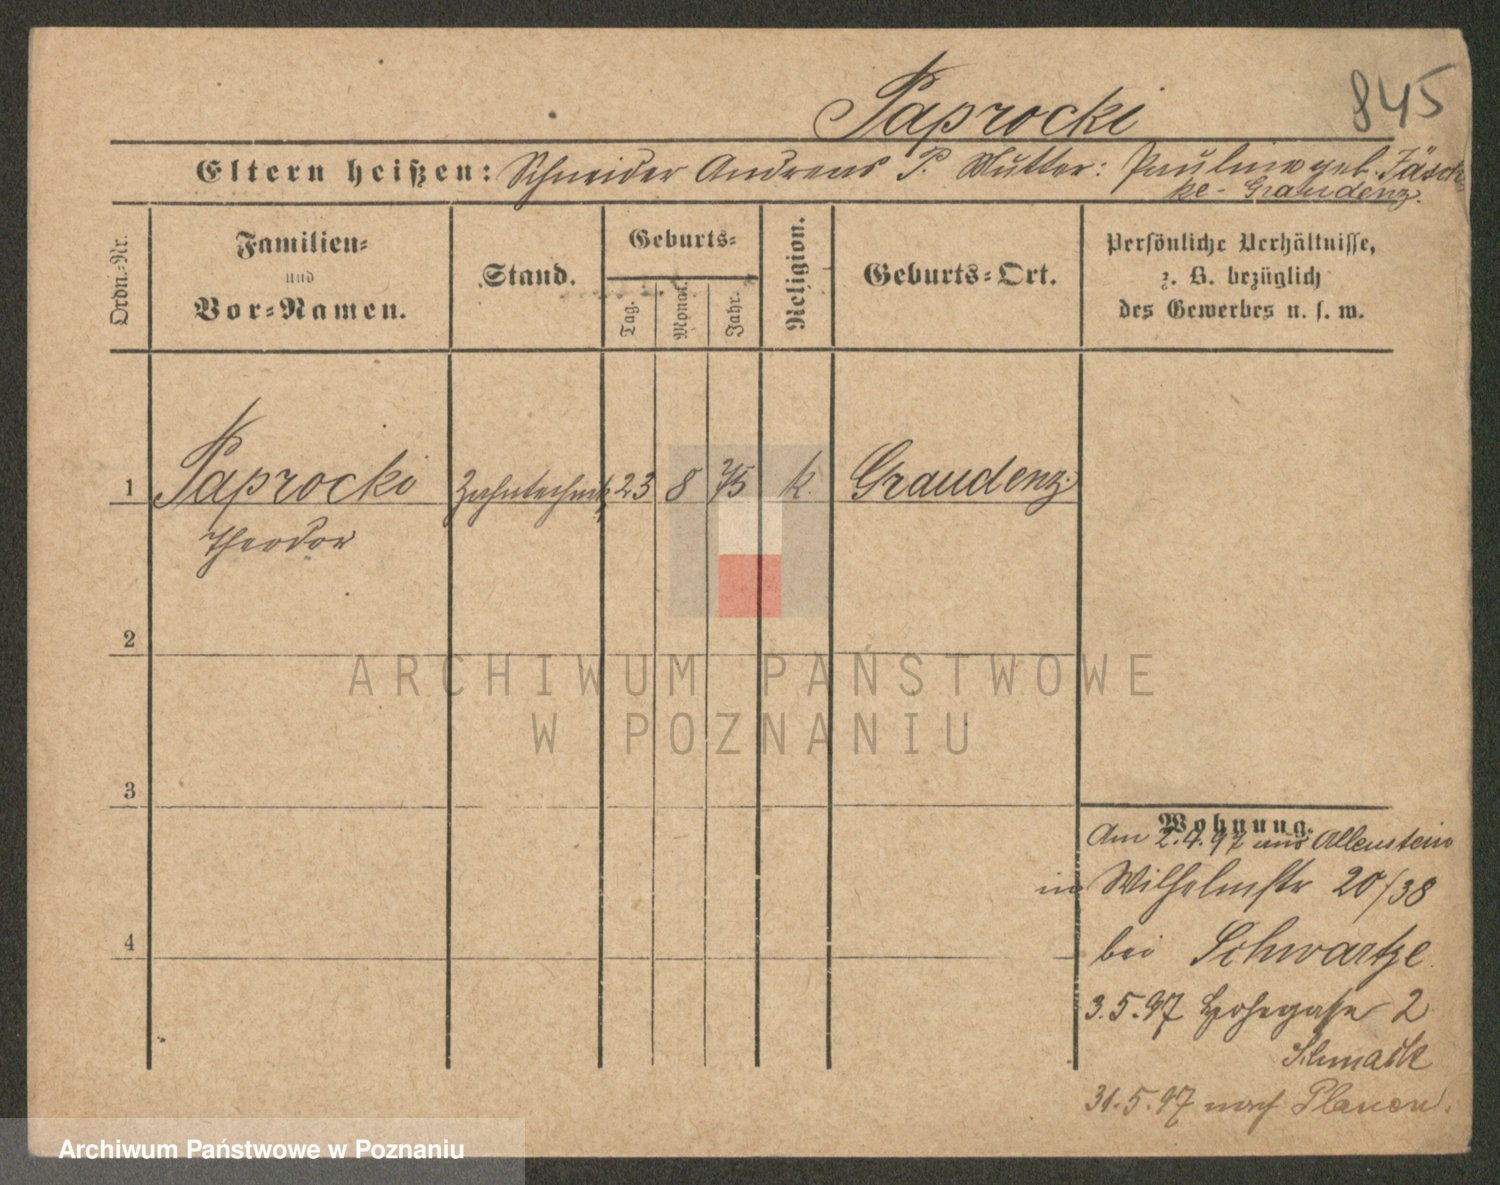 845
Paprocki
Eltern heißen: Schneider Andreas P. Mutter: Pauline geb. Jäsch
ke - Graudenz.
Ordn.-Nr.
Familien-
und
Vor-Namen.
Stand.
Geburts-
Tag.
Monat.
Jahr.
Religion.
Geburts-Ort.
Persönliche Verhältnisse,
z. B. bezüglich
des Gewerbes u. s. w.
1 Paprocki Zahntechnik 23 8 75 k. Graudenz.
Theodor
2
3
4
ARCHIWUM PAŃSTWOWE
W POZNANIU
Wohnung.
Am 2.4.97 aus Allenstein
in Wilhelmstr 20/38
bei Schwartze
3.5.97 Hohegasse 2
31.5.97 nach Plauen.
Archiwum Państwowe w Poznaniu